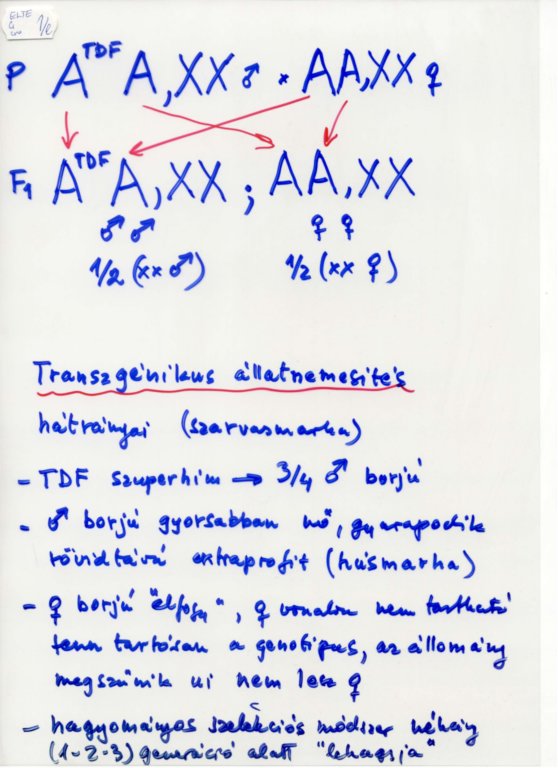 ELTE
G
1/e
P A^TDF A, XX ♂ × AA, XX ♀
F1 A^TDF A, XX ; AA, XX
♂ ♂ ♀ ♀
1/2 (xx ♂) 1/2 (xx ♀)
Transzgénikus állatnemesítés
hátrányai (szarvasmarha)
- TDF szuperhím → 3/4 ♂ borjú
- ♂ borjú gyorsabban nő, gyarapodik
rövidtávú extraprofit (húsmarha)
- ♀ borjú "elfogy", ♀ vonalon nem tartható
fenn tartósan a genotípus, az állomány
megszűnik ui nem lesz ♀
- hagyományos szelekciós módszer néhány
(1-2-3) generáció alatt "lehagyja"